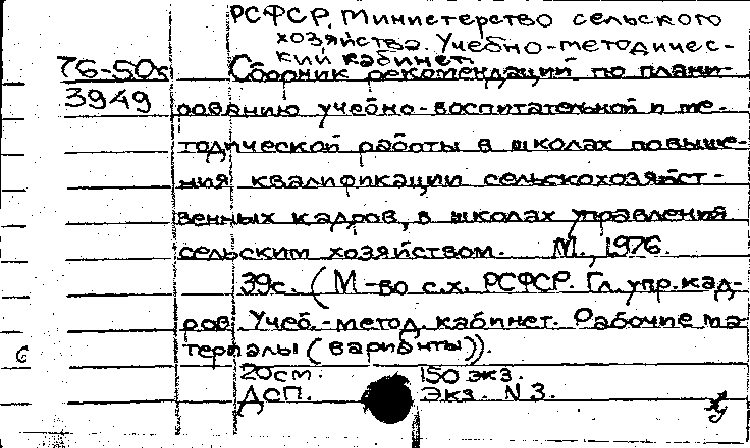 РСФСР. Министерство сельского
хозяйства. Учебно-методичес-
кий кабинет.
76-50к Сборник рекомендаций по плани-
3949 рованию учебно-воспитательной и ме-
тодической работы в школах повыше-
ния квалификации сельскохозяйст-
венных кадров, в школах управления
сельским хозяйством. М., 1976.
39с. (М-во с.х. РСФСР. Гл. упр. кад-
ров. Учеб.-метод. кабинет. Рабочие ма-
териалы (варианты)).
20см. 150 экз.
ДСП. Экз. N 3.